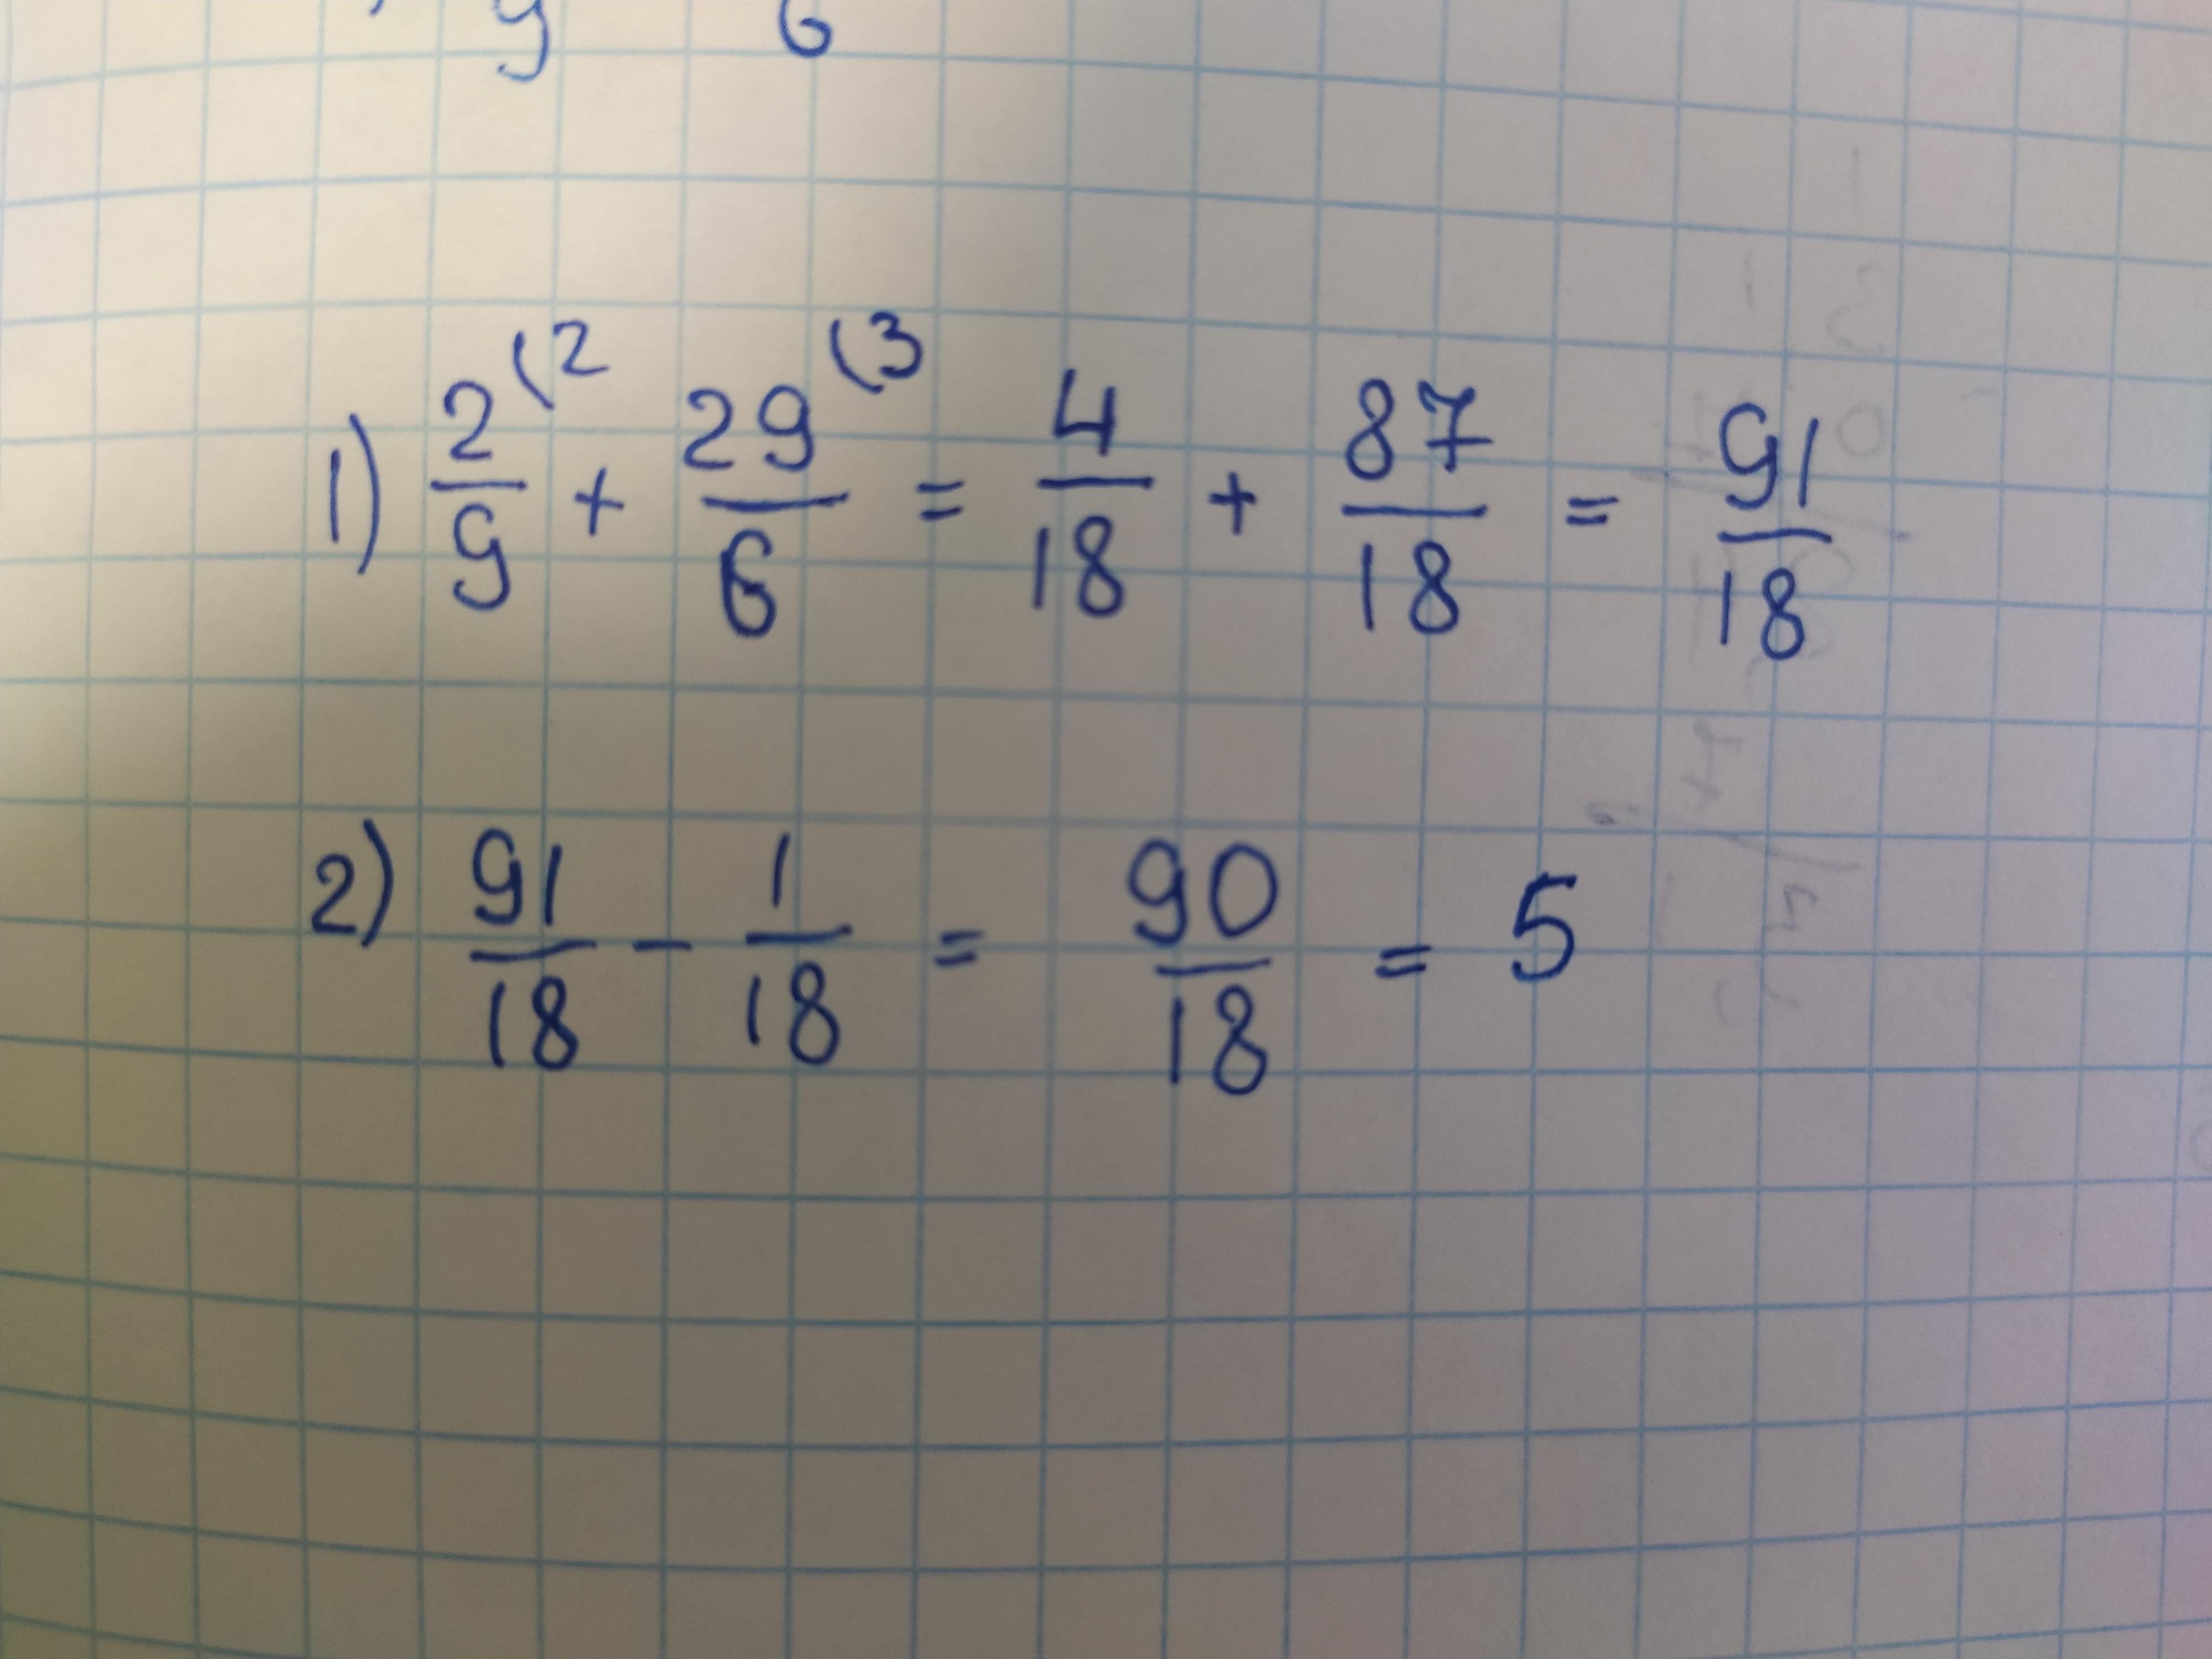 9 6
1) 2/9 (2 + 29/6 (3 = 4/18 + 87/18 = 91/18
2) 91/18 - 1/18 = 90/18 = 5